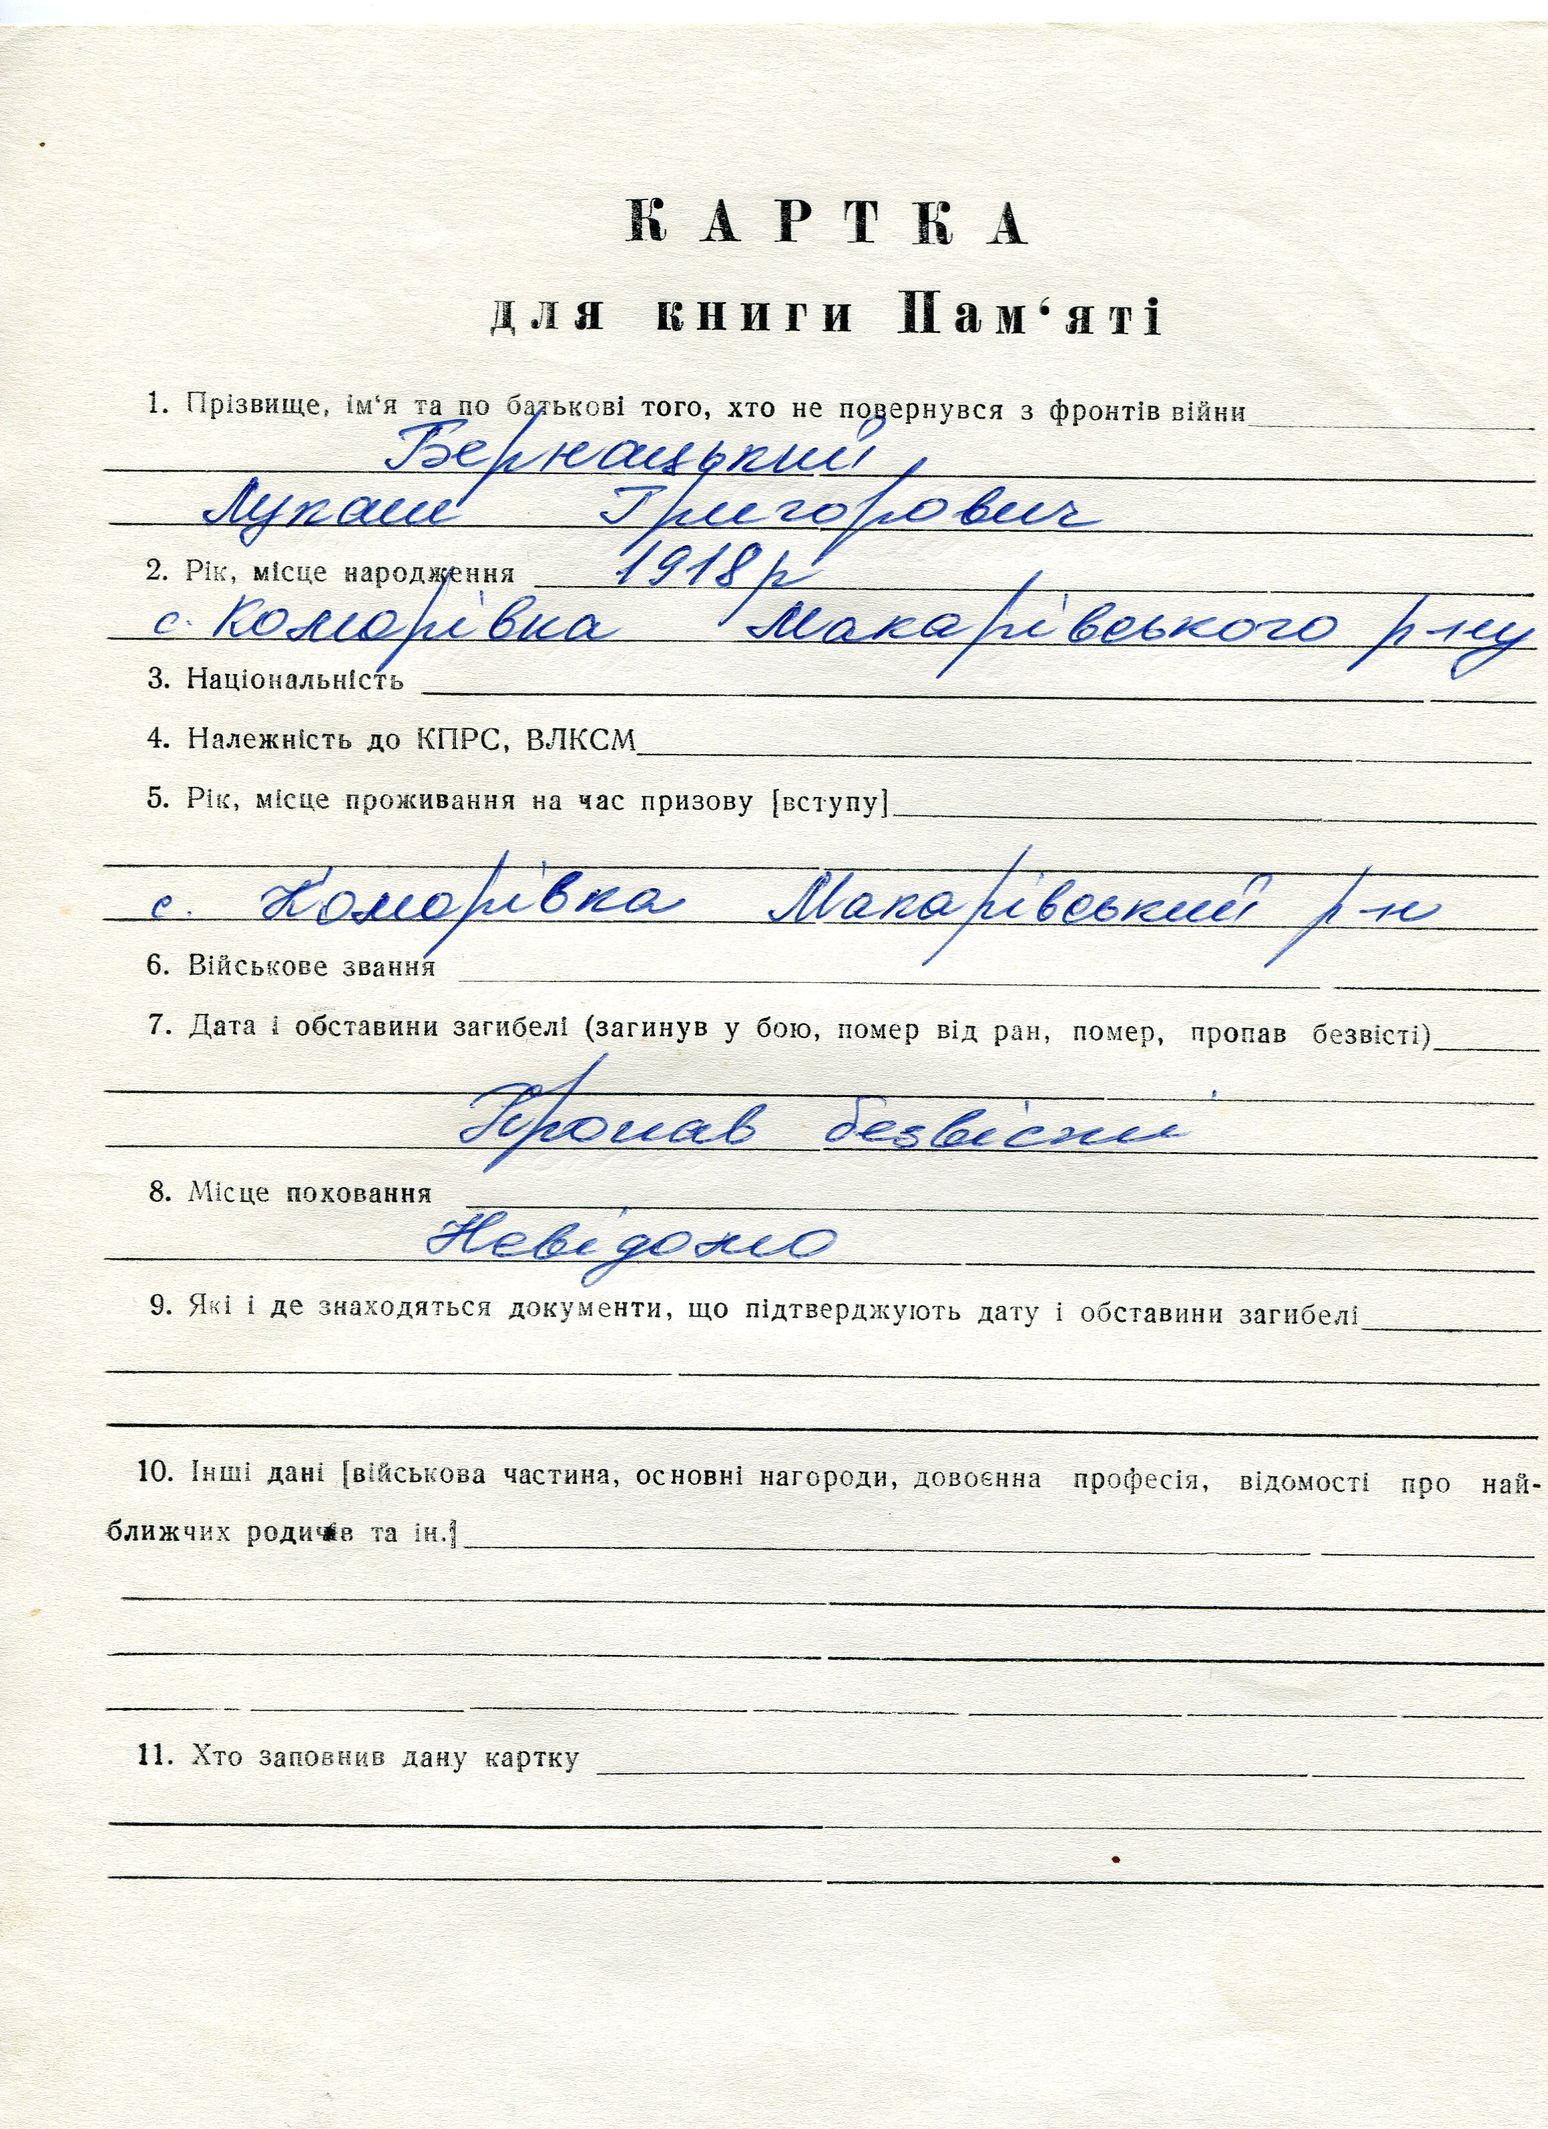 КАРТКА
для книги Пам‘яті
1. Прізвище, ім‘я та по батькові того, хто не повернувся з фронтів війни
Бернацький
Лукаш Григорович
2. Рік, місце народження 1918 р
с. Коморівка Макарівського р-ну
3. Національність
4. Належність до КПРС, ВЛКСМ
5. Рік, місце проживання на час призову [вступу]
с. Коморівка Макарівський р-н
6. Військове звання
7. Дата і обставини загибелі (загинув у бою, помер від ран, помер, пропав безвісті)
Пропав безвісти
8. Місце поховання
Невідомо
9. Які і де знаходяться документи, що підтверджують дату і обставини загибелі
10. Інші дані [військова частина, основні нагороди, довоєнна професія, відомості про най-
ближчих родичів та ін.]
11. Хто заповнив дану картку